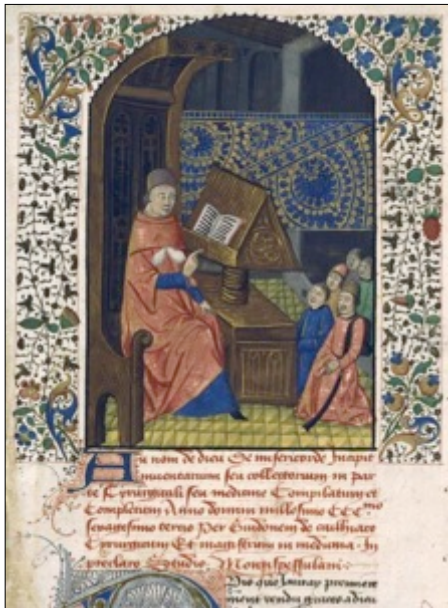 Au nom de dieu Et misericorde Incipit
inventarium seu collectorium in par
te Cyrurgicali seu medicine Compilatum et
Completum Anno domini millesimo CCC mo
sexagesimo tercio Per Guidonem de
Cyrurgicum Et magistrum in medicina In
preclaro Studio Montispessulani
que premiere
ment rendu graces a dieu